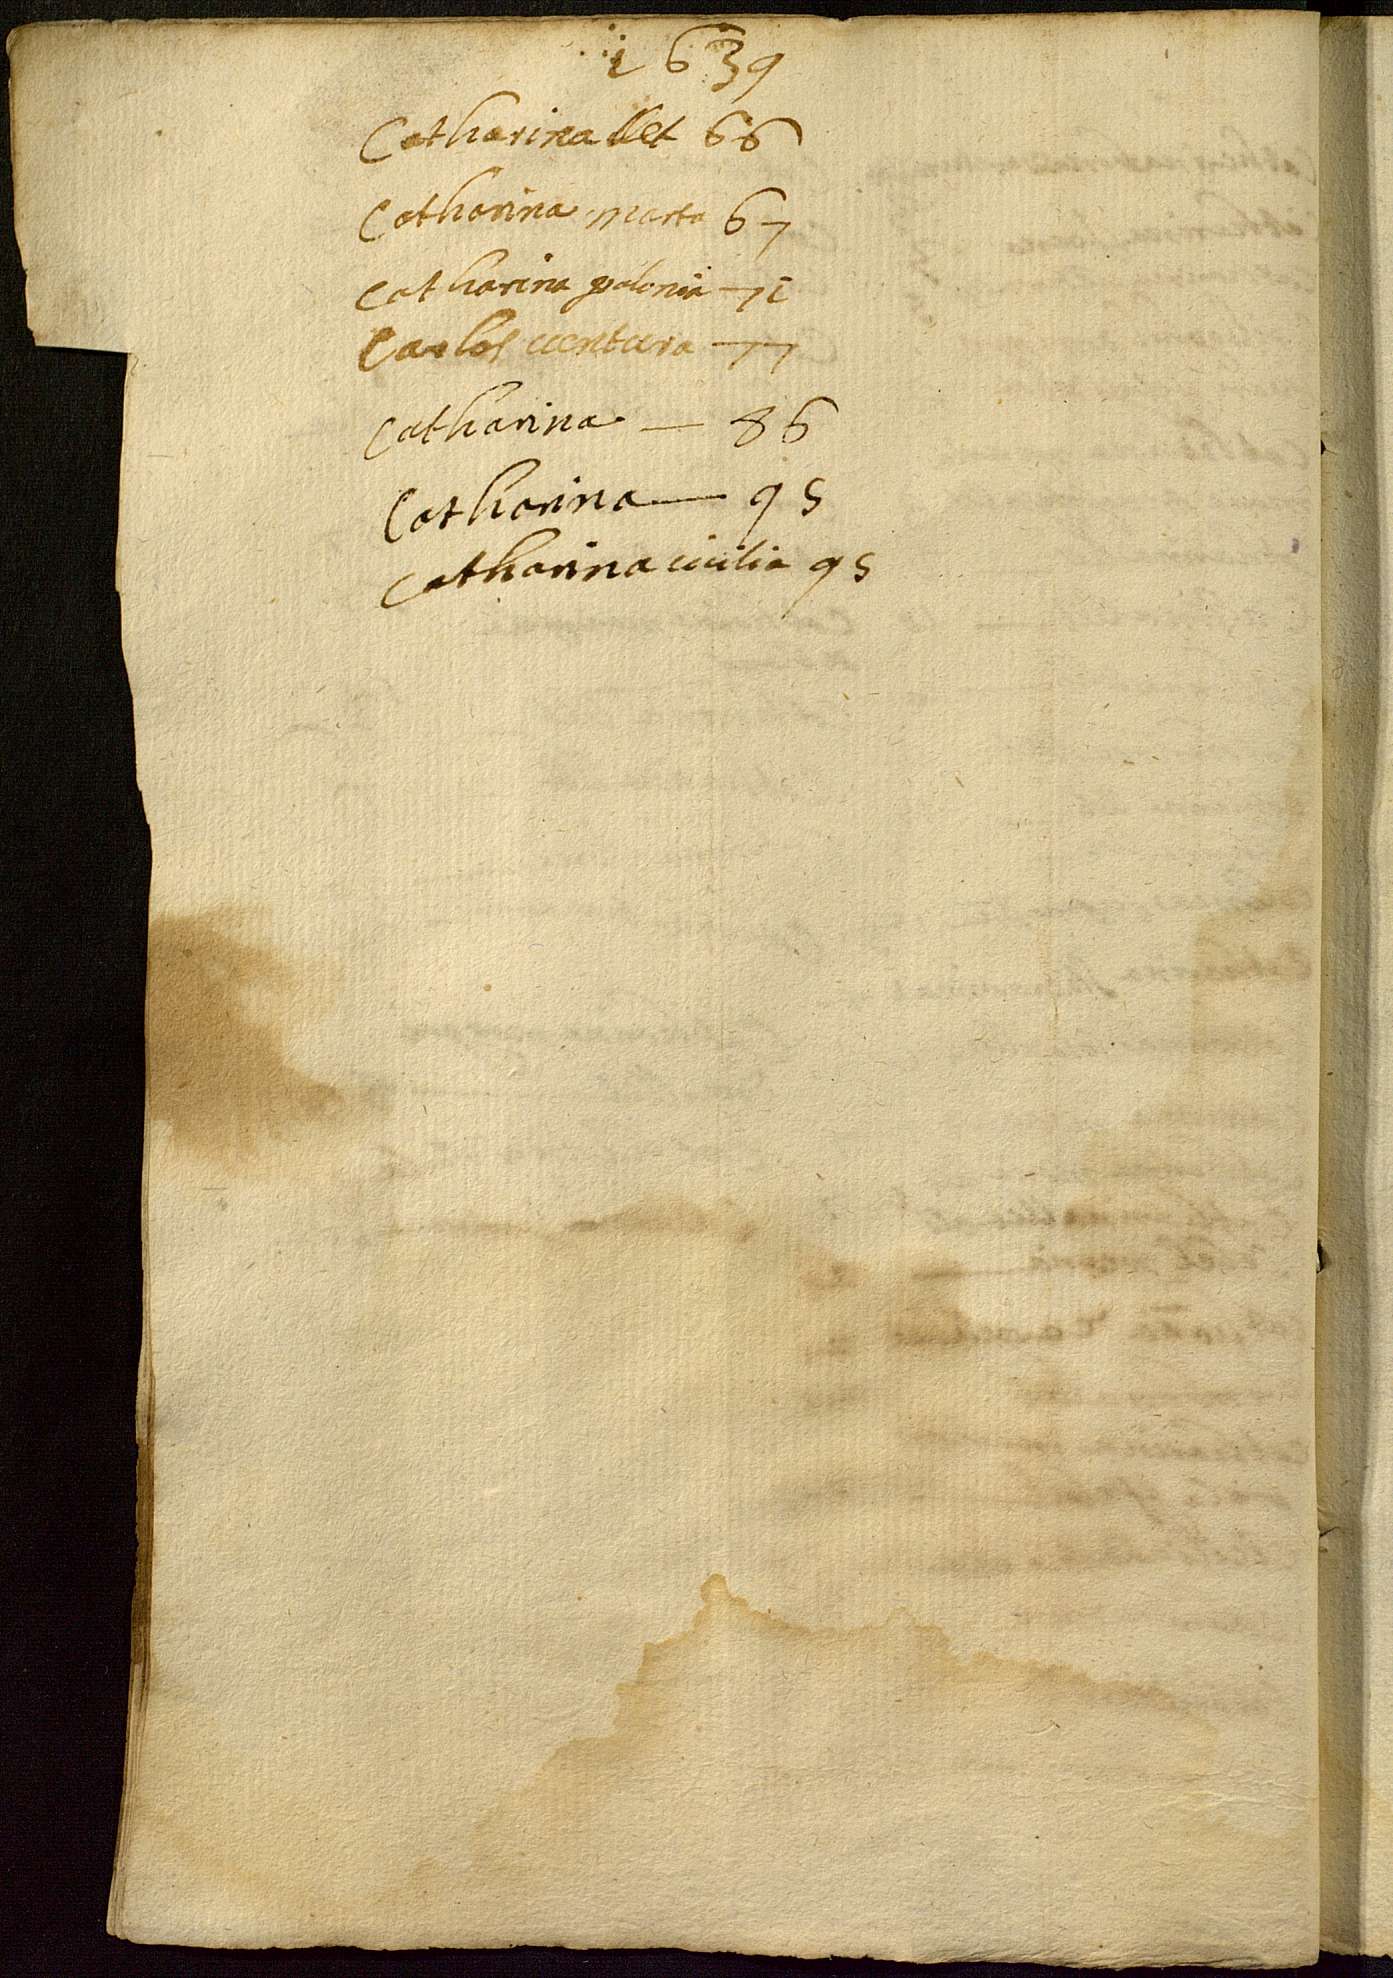 1639
Catharina bet 66
Catharina marta 67
Catharina polonia — 71
Carlos uentura — 77
Catharina — 86
Catharina — 95
Catharina cicilia 95